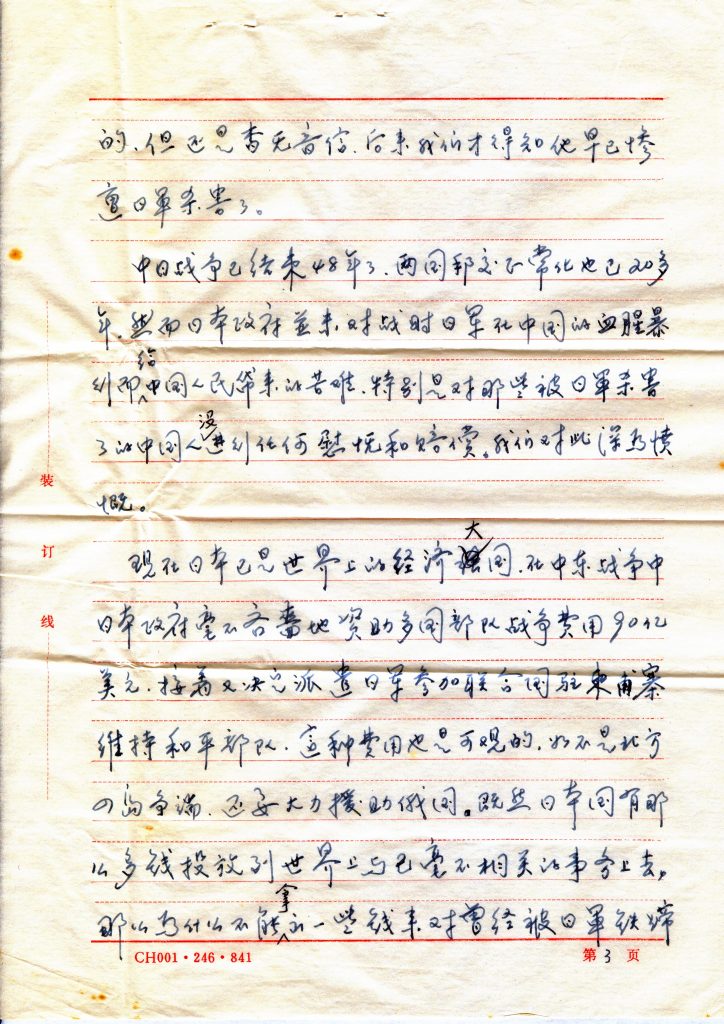 的，但还是杳无音信，后来我们才得知他早已惨
遭日軍杀害了。
中日战争已结束48年了，两国邦交正常化也已20多
年，然而日本政府並未对战时日军在中国的血腥暴
行而给中国人民带来的苦难，特别是对那些被日軍杀害
了的中国人没进行任何慰抚和赔偿。我们对此深为愤
慨。
现在日本已是世界上的经济大国，在中东战争中
日本政府毫不吝啬地资助多国部队战争费用90亿
美元，接着又决定派遣日军参加联合国驻柬甫寨
维持和平部队，這种费用也是可观的，如不是北方
四岛争端，还要大力援助俄国。既然日本国有那
么多钱投放到世界上与己毫不相关的事务上去，
那么为什么不能拿出一些钱来对曾经被日軍铁蹄
装
订
线
CH001·246·841
第 3 页